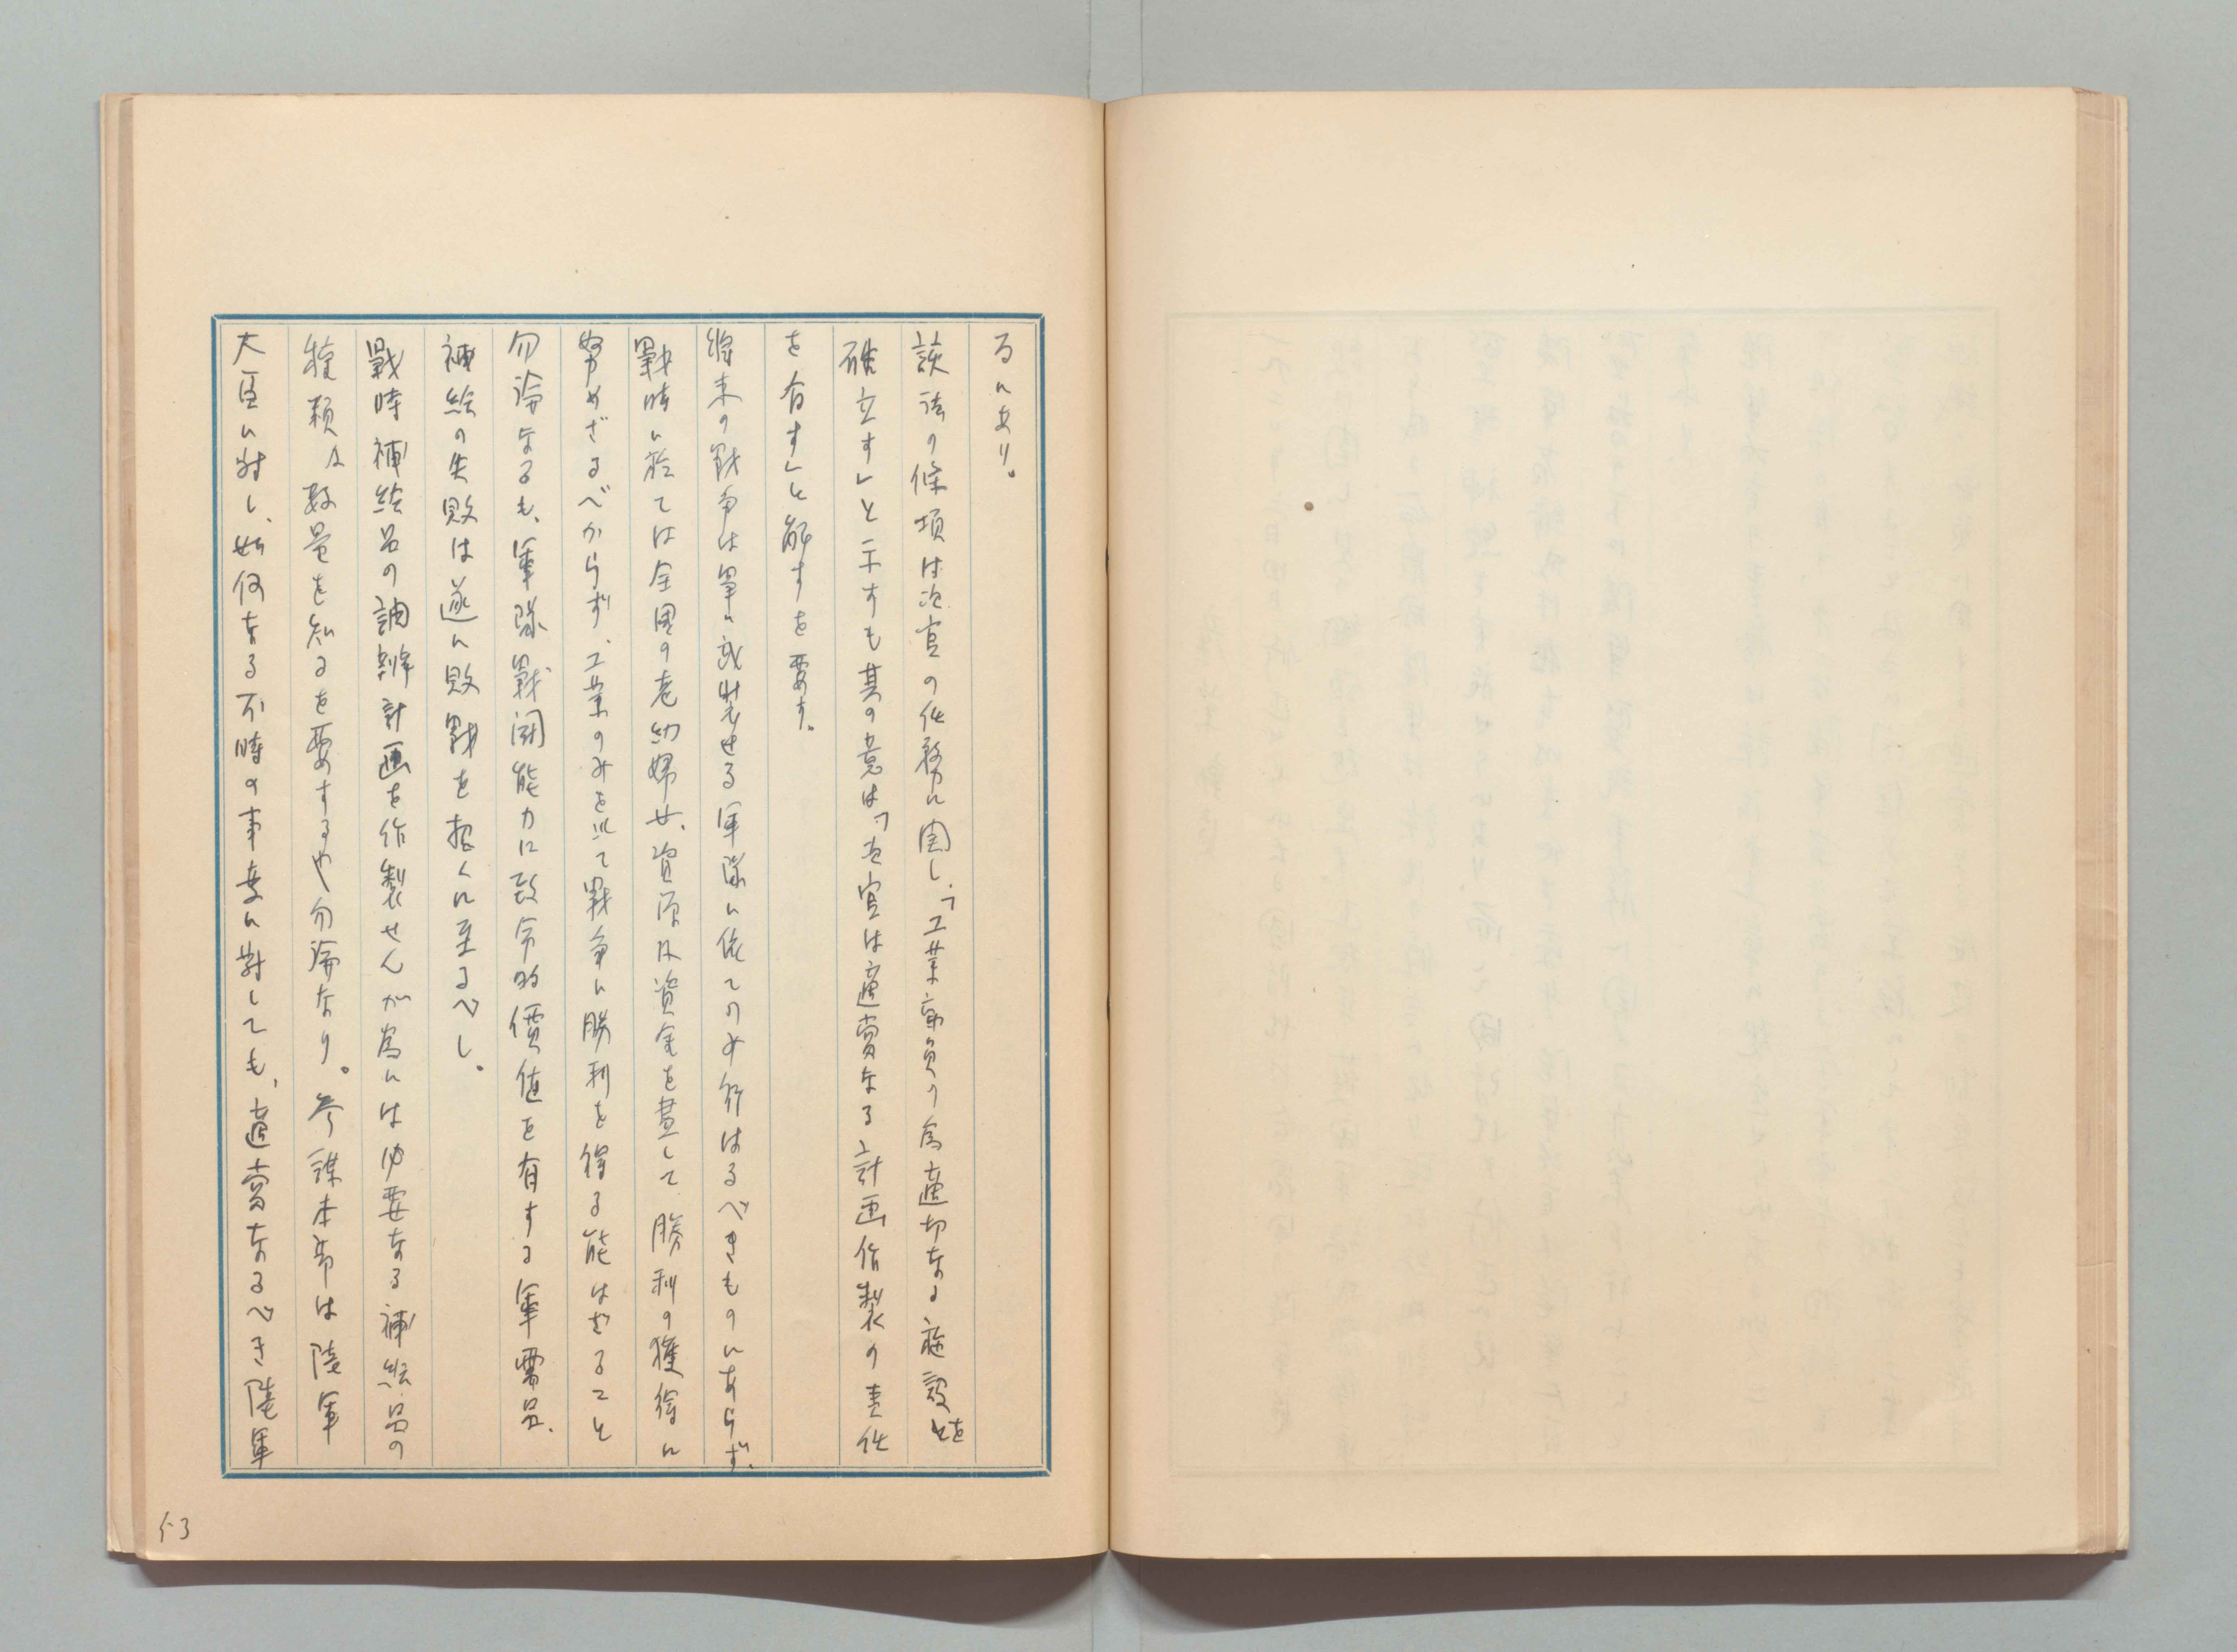 るにあり。
該法の條項は次官の任務に関し、「工業動員の為適切なる施設を
確立す」と示すも其の意は「次官は適當なる計画作製の責任
を有す」と解すを要す。
将来の戦争は単に武装せる軍隊に依てのみ行はるべきものにあらず、
戦時に於ては全国の老幼婦女、資源及資金を盡して勝利の獲得に
努めざるべからず、工業のみを以て戦争に勝利を得る能はざること
勿論なるも、軍隊戦闘能力に致命的價値を有する軍需品、
補給の失敗は遂に敗戦を招くに至るべし。
戰時補給品の調辨計画を作製せんが為には必要なる補給品の
種類及数量を知るを要するや勿論なり。参謀本部は陸軍
大臣に対し、如何なる不時の事変に対しても、適當なるべき陸軍
53